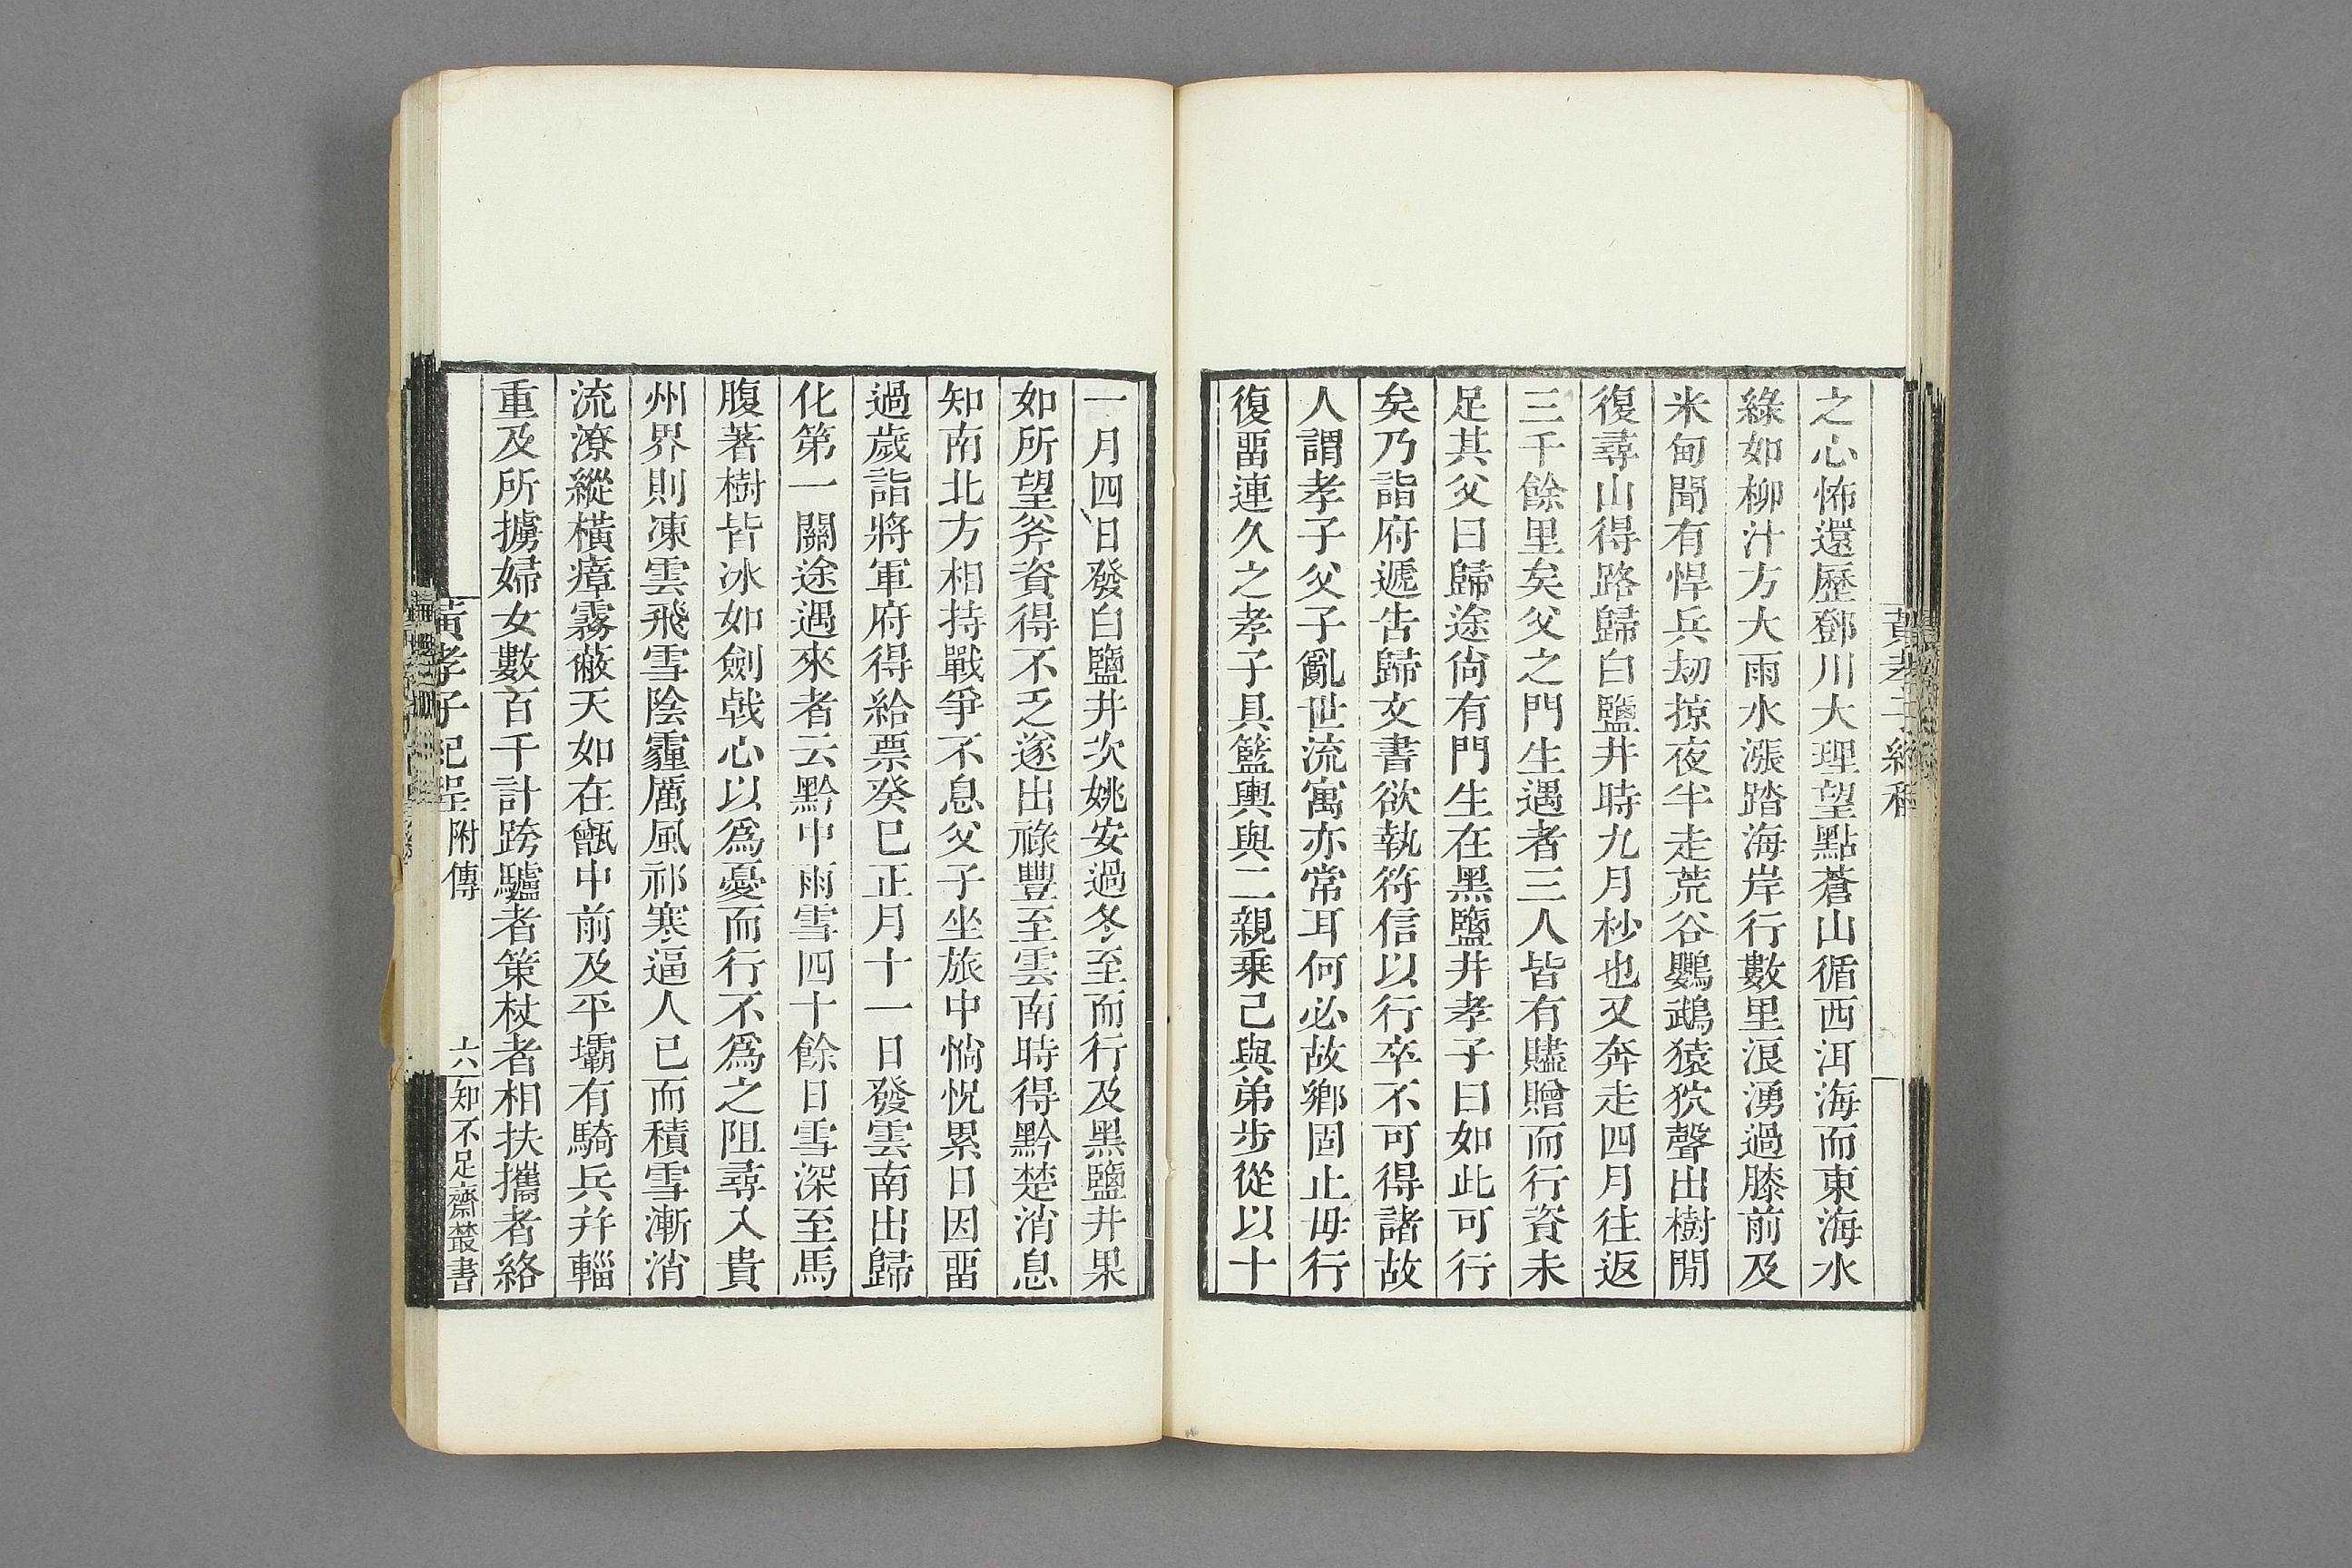 之心怖還歷鄧川大理望點蒼山循西洱海而東海水
綠如柳汁方大雨水漲踏海岸行數里浪湧過膝前及
米甸聞有悍兵刼掠夜半走荒谷鸚鵡猿狖聲出樹閒
復尋山得路歸白鹽井時九月杪也又奔走四月往返
三千餘里矣父之門生遇者三人皆有贐贈而行資未
足其父曰歸途尙有門生在黑鹽井孝子曰如此可行
矣乃詣府遞告歸文書欲執符信以行卒不可得諸故
人謂孝子父子亂世流寓亦常耳何必故鄉固止毋行
復畱連久之孝子具籃輿與二親乘己與弟步從以十
一月四日發白鹽井次姚安過冬至而行及黑鹽井果
如所望斧資得不乏遂出祿豐至雲南時得黔楚消息
知南北方相持戰爭不息父子坐旅中惝怳累日因畱
過歲詣將軍府得給票癸巳正月十一日發雲南出歸
化第一關途遇來者云黔中雨雪四十餘日雪深至馬
腹著樹皆冰如劍戟心以爲憂而行不爲之阻尋入貴
州界則凍雲飛雪陰霾厲風祁寒逼人已而積雪漸消
流潦縱橫瘴霧蔽天如在甑中前及平壩有騎兵幷輜
重及所擄婦女數百千計跨驢者策杖者相扶攜者絡
黃孝子紀程 附傳 六 知不足齋叢書